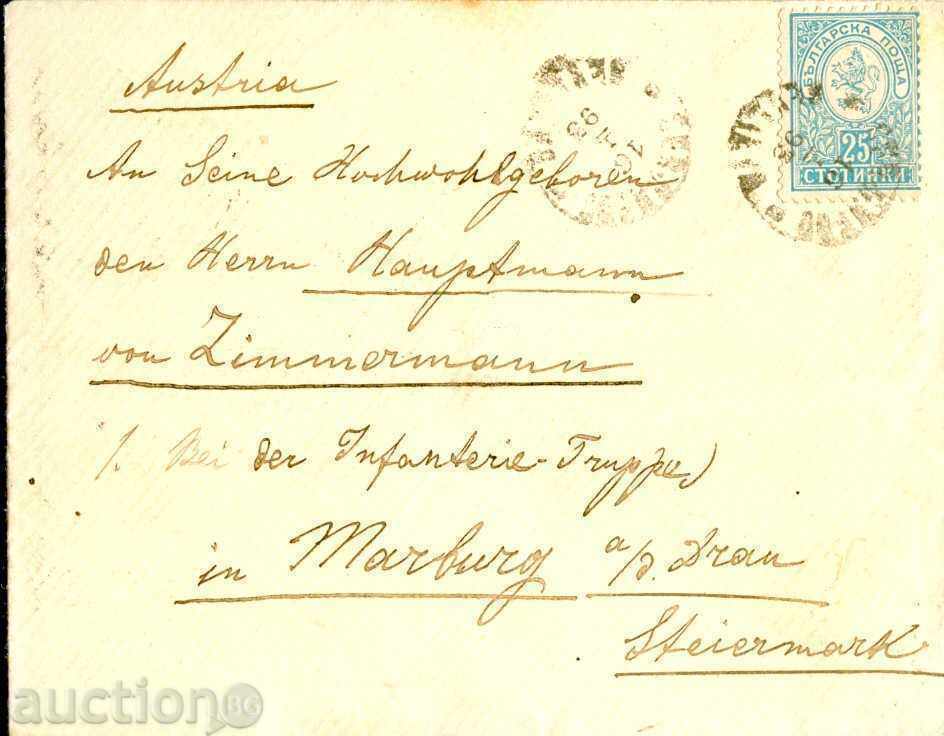 Austria
An Seine Hochwohlgeboren
den Herrn Hauptmann
von Zimmermann
/. Bei der Infanterie-Truppe)
in Marburg a/d. Drau
Steiermark
БЪЛГАРСКА ПОЩА
25
СТОТИНКИ
93
auction.BG